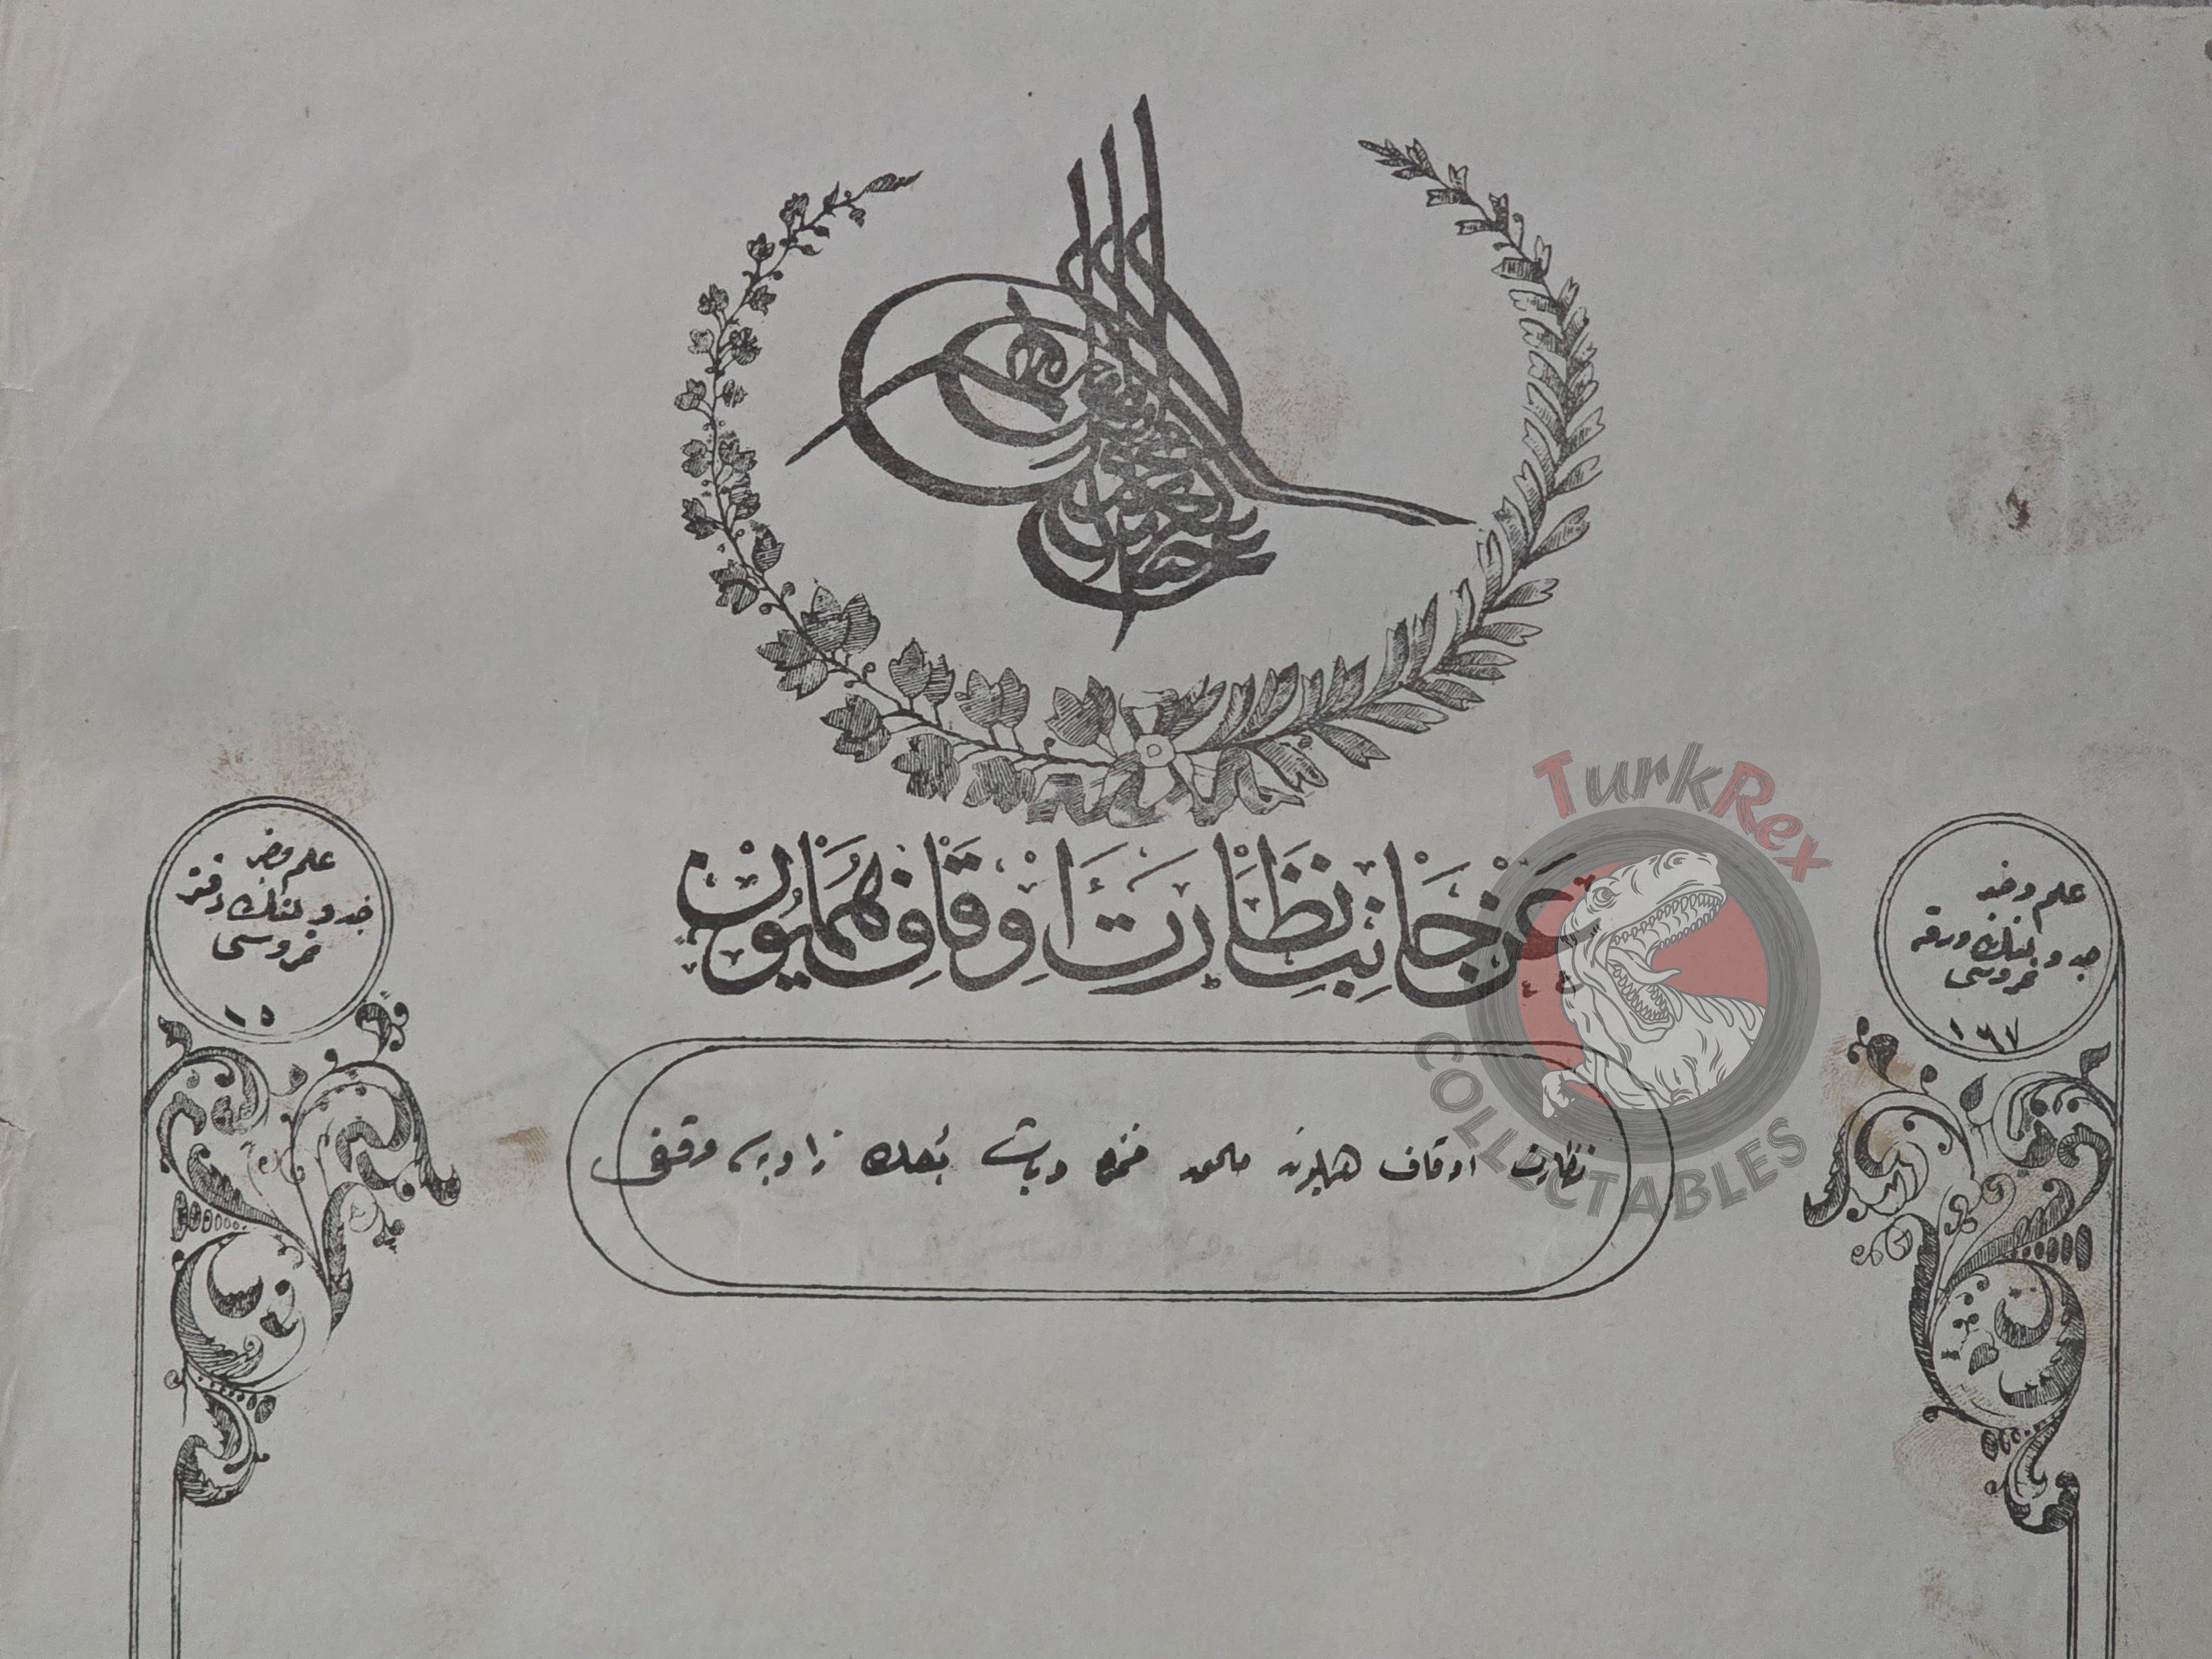 عَنْ جَانِبِ نَظَارَتِ اَوْقَافِ هُمَايُونْ
علم و خبر
جدولنك ورقه
نمروسى
١٦٧
علم و خبر
جدولنك دفتر
نمروسى
١٥
نظارت اوقاف همايونه ملحق
زاويه سى وقفى
TurkRex
COLLECTABLES